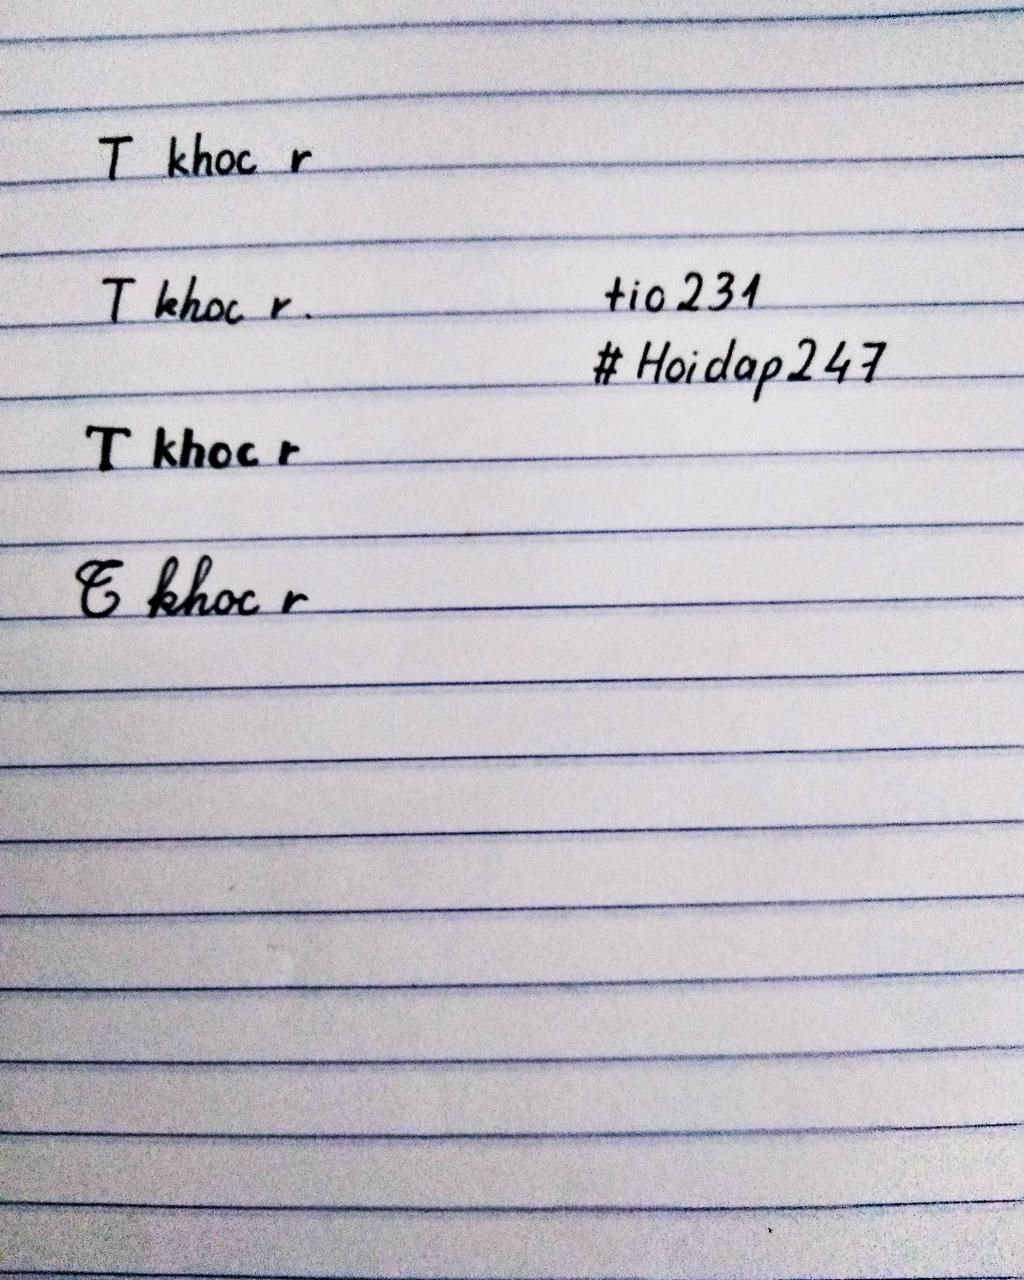 T khoc r
T khoc r.
tio231
#Hoidap247
T khoc r
T khoc r